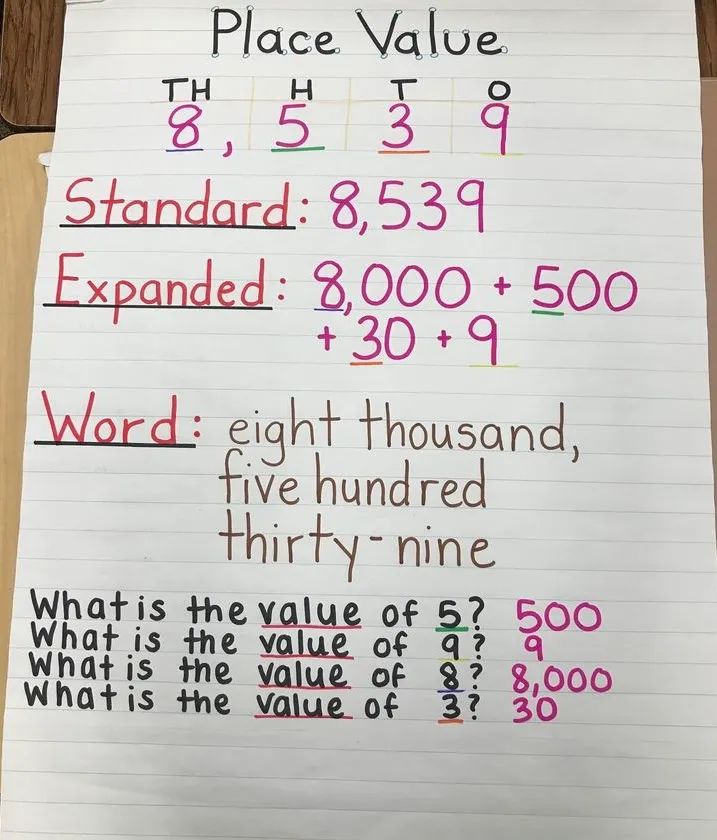 Place Value
TH H T O
8, 5 3 9
Standard: 8,539
Expanded: 8,000 + 500
+ 30 + 9
Word: eight thousand,
five hundred
thirty-nine
What is the value of 5? 500
What is the value of 9? 9
What is the value of 8? 8,000
What is the value of 3? 30